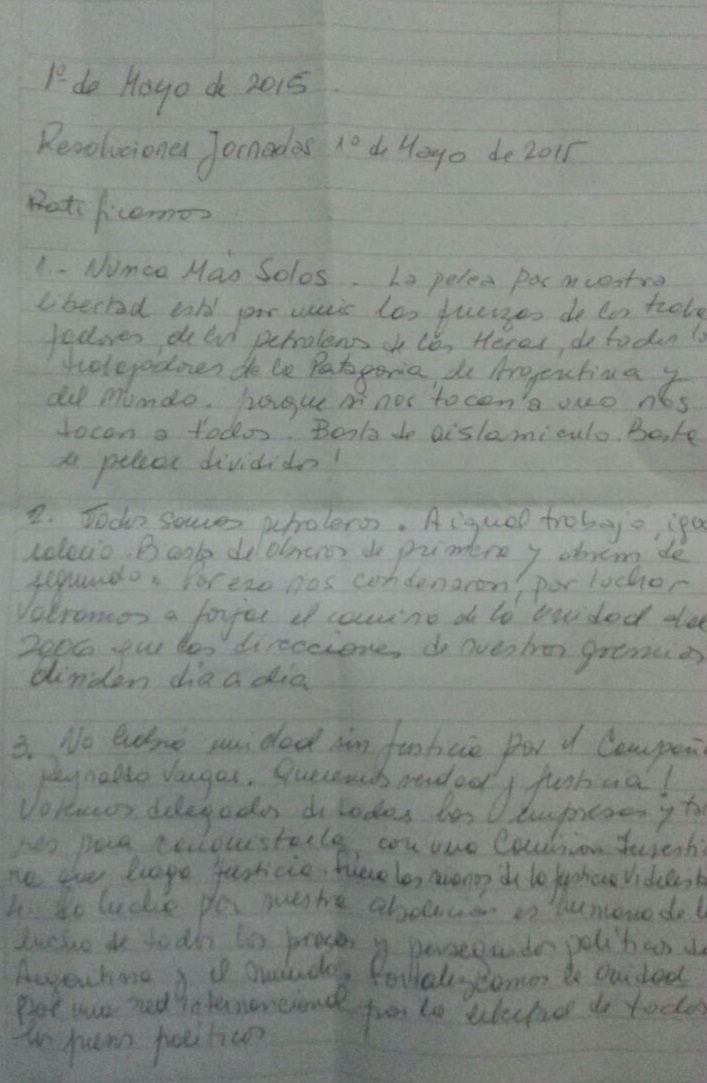 1º de Mayo de 2015.
Resoluciones Jornadas 1º de Mayo de 2015
Ratificamos
1.- Nunca Más Solos. La pelea por nuestra
libertad está por unir las fuerzas de los traba
jadores, de los petroleros de Las Heras, de todos lo
trabajadores de la Patagonia, de Argentina y
del Mundo. porque si nos tocan a uno nos
tocan a todos. Basta de aislamiento. Basta
de pelear divididos!
2. Todos somos petroleros. A igual trabajo, igua
salario. Basta de obreros de primera y obreros de
segunda. Por eso nos condenaron, por luchar
Volvamos a forjar el camino de la unidad del
2006 que las direcciones de nuestros gremios
dividen día a día
3. No habrá unidad sin justicia por el Compañe
Reynaldo Vargas. Queremos verdad y justicia!
Votemos delegados de todas las empresas y
para conquistarla con una Comisión Investi
que haga justicia. Fuera las manos de la justicia Videlista
4. La lucha por nuestra absolución es hermana de l
lucha de todos los presos y perseguidos políticos de
Argentina y el mundo. Fortalezcamos la unidad
por una red internacional por la libertad de todos
los presos políticos